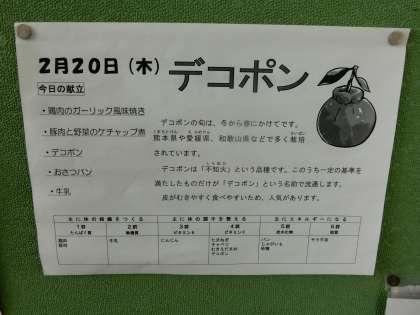 2月20日(木) デコポン
今日の献立
・鶏肉のガーリック風味焼き
・豚肉と野菜のケチャップ煮
・デコポン
・おさつパン
・牛乳
デコポンの旬は、冬から春にかけてです。
熊本県や愛媛県、和歌山県などで多く栽培
されています。
デコポンは「不知火」という品種です。このうち一定の基準を
満たしたものだけが「デコポン」という名前で流通します。
皮がむきやすく食べやすいため、人気があります。
主に体の組織をつくる 主に体の調子を整える 主にエネルギーになる
1群 2群 3群 4群 5群 6群
たんぱく質 無機質 ビタミンA ビタミンC 炭水化物 脂質
鶏肉 牛乳 にんじん たまねぎ パン
豚肉 キャベツ じゃがいも
砂糖